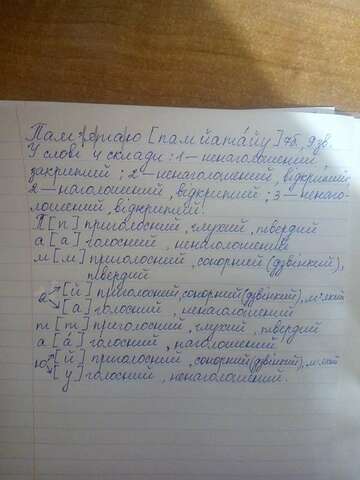 Пам'ятаю [памйата́йу] 7б, 9зв
У слові 4 склади: 1 – ненаголошений
закритий; 2 – ненаголошений, відкритий;
2 – наголошений, відкритий; 3 – ненаго-
лошений, відкритий.
П [п] приголосний, глухий, твердий
а [а] голосний, ненаголошений
м [м] приголосний, сонорний (дзвінкий),
твердий
я [й] приголосний, сонорний (дзвінкий), м'який
[а] голосний, ненаголошений
т [т] приголосний, глухий, твердий
а [а́] голосний, наголошений
ю [й] приголосний, сонорний (дзвінкий), м'який
[у] голосний, ненаголошений.